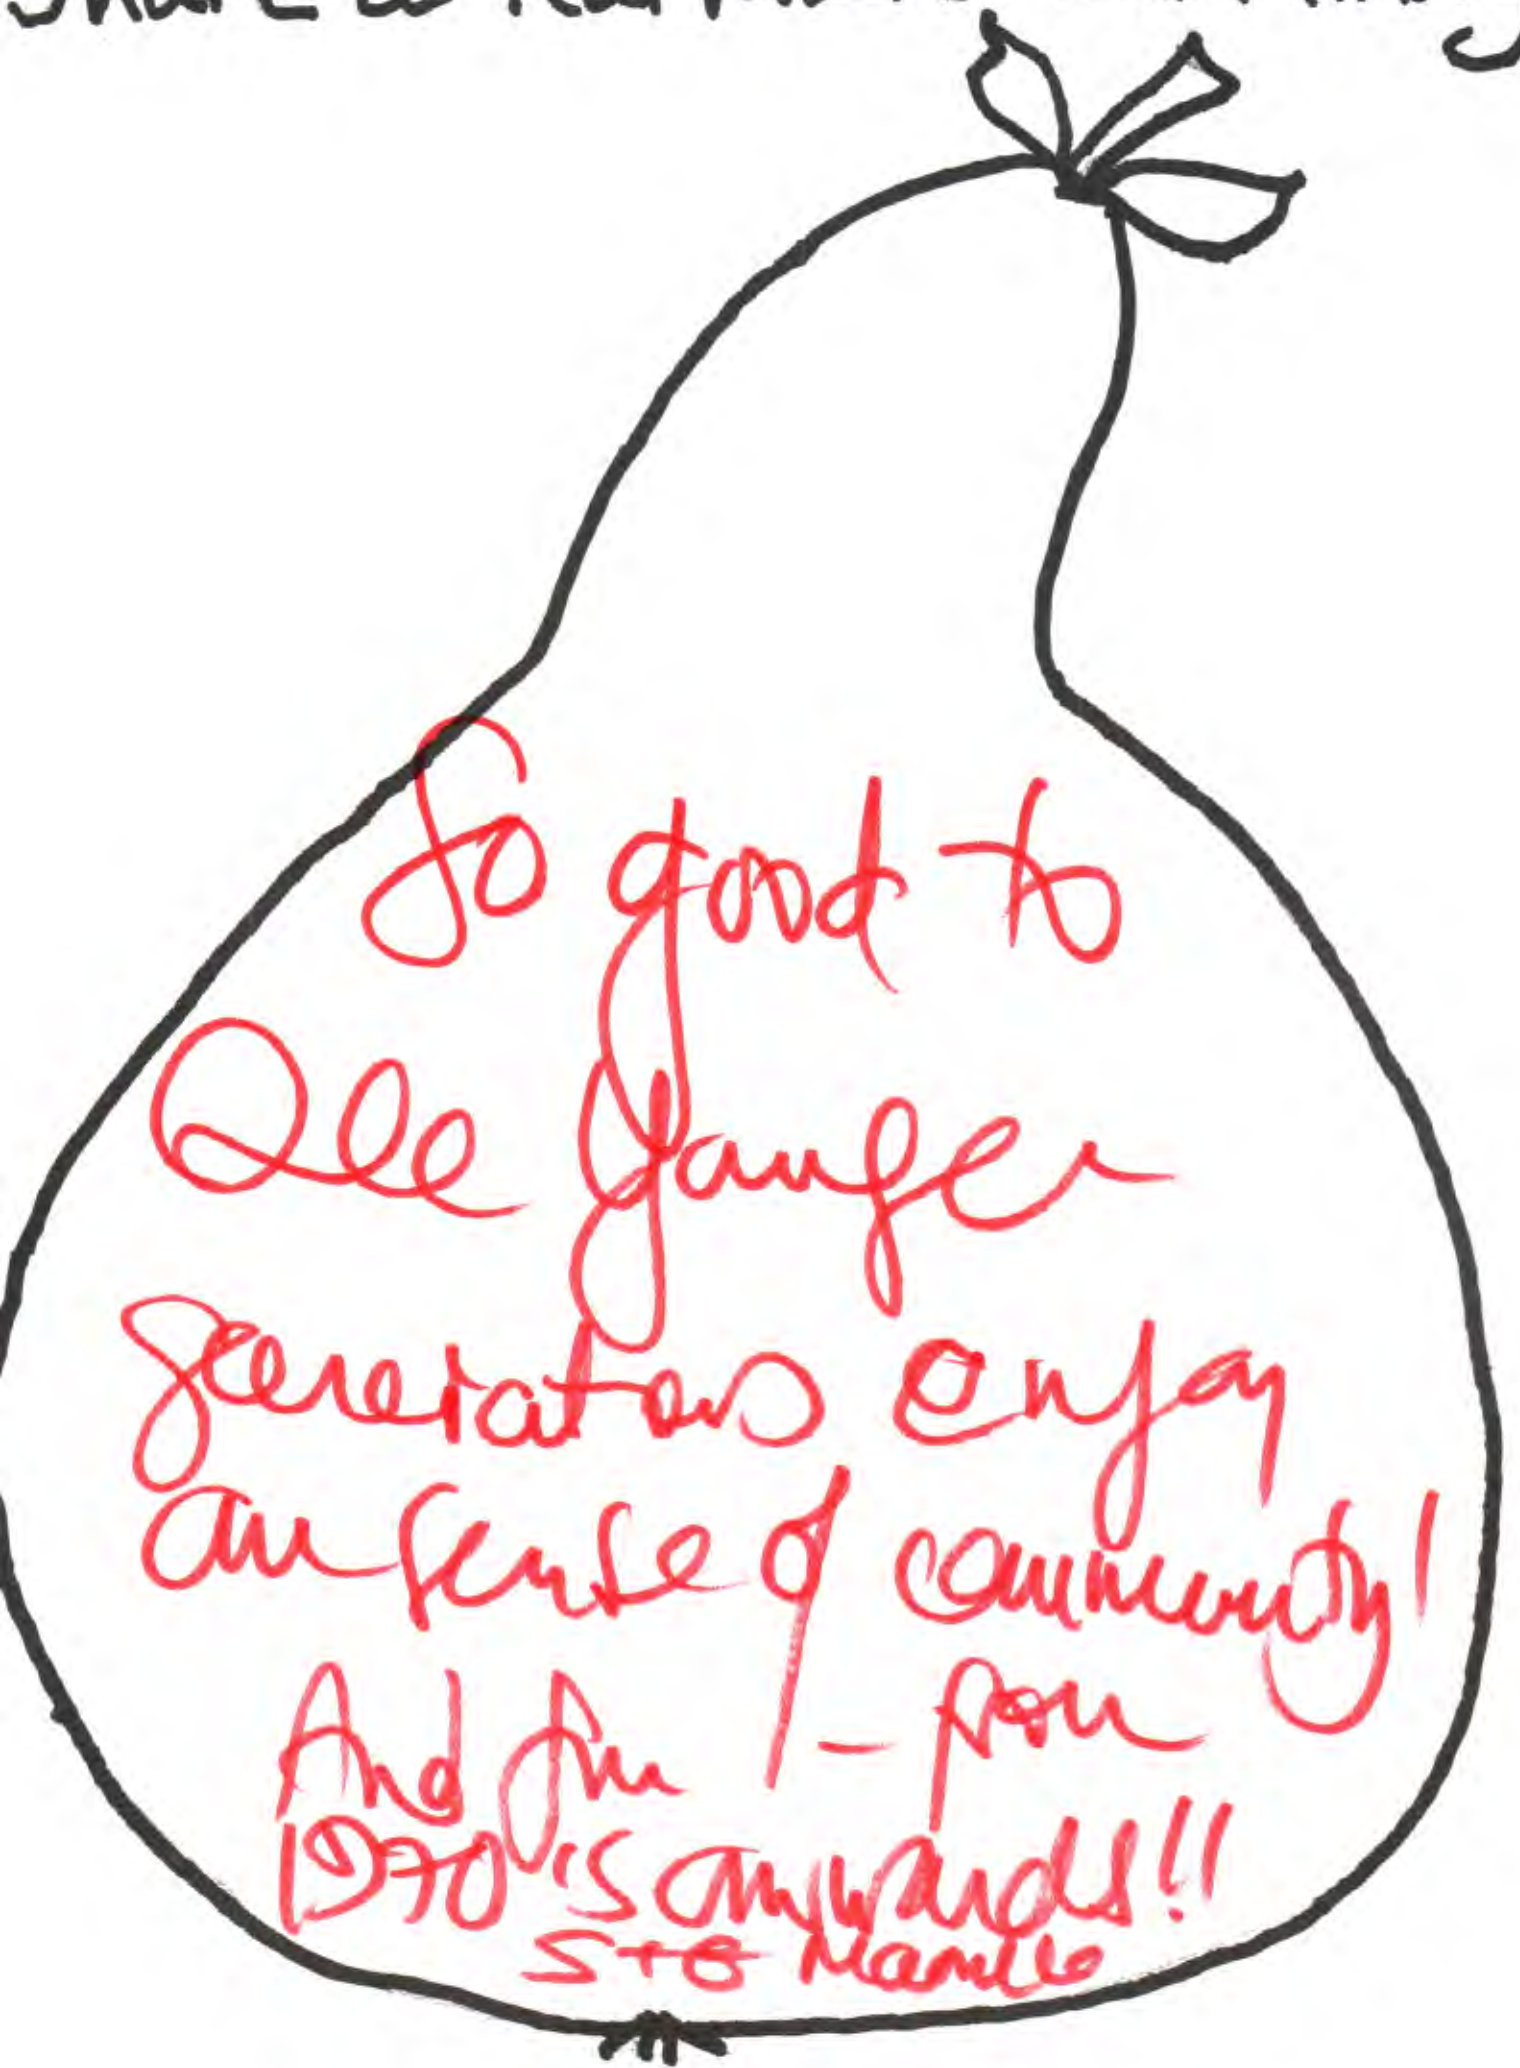 share a
So good to
See younger
generations enjoy
our sense of community!
And fun - from
1970's onwards!!
S+B